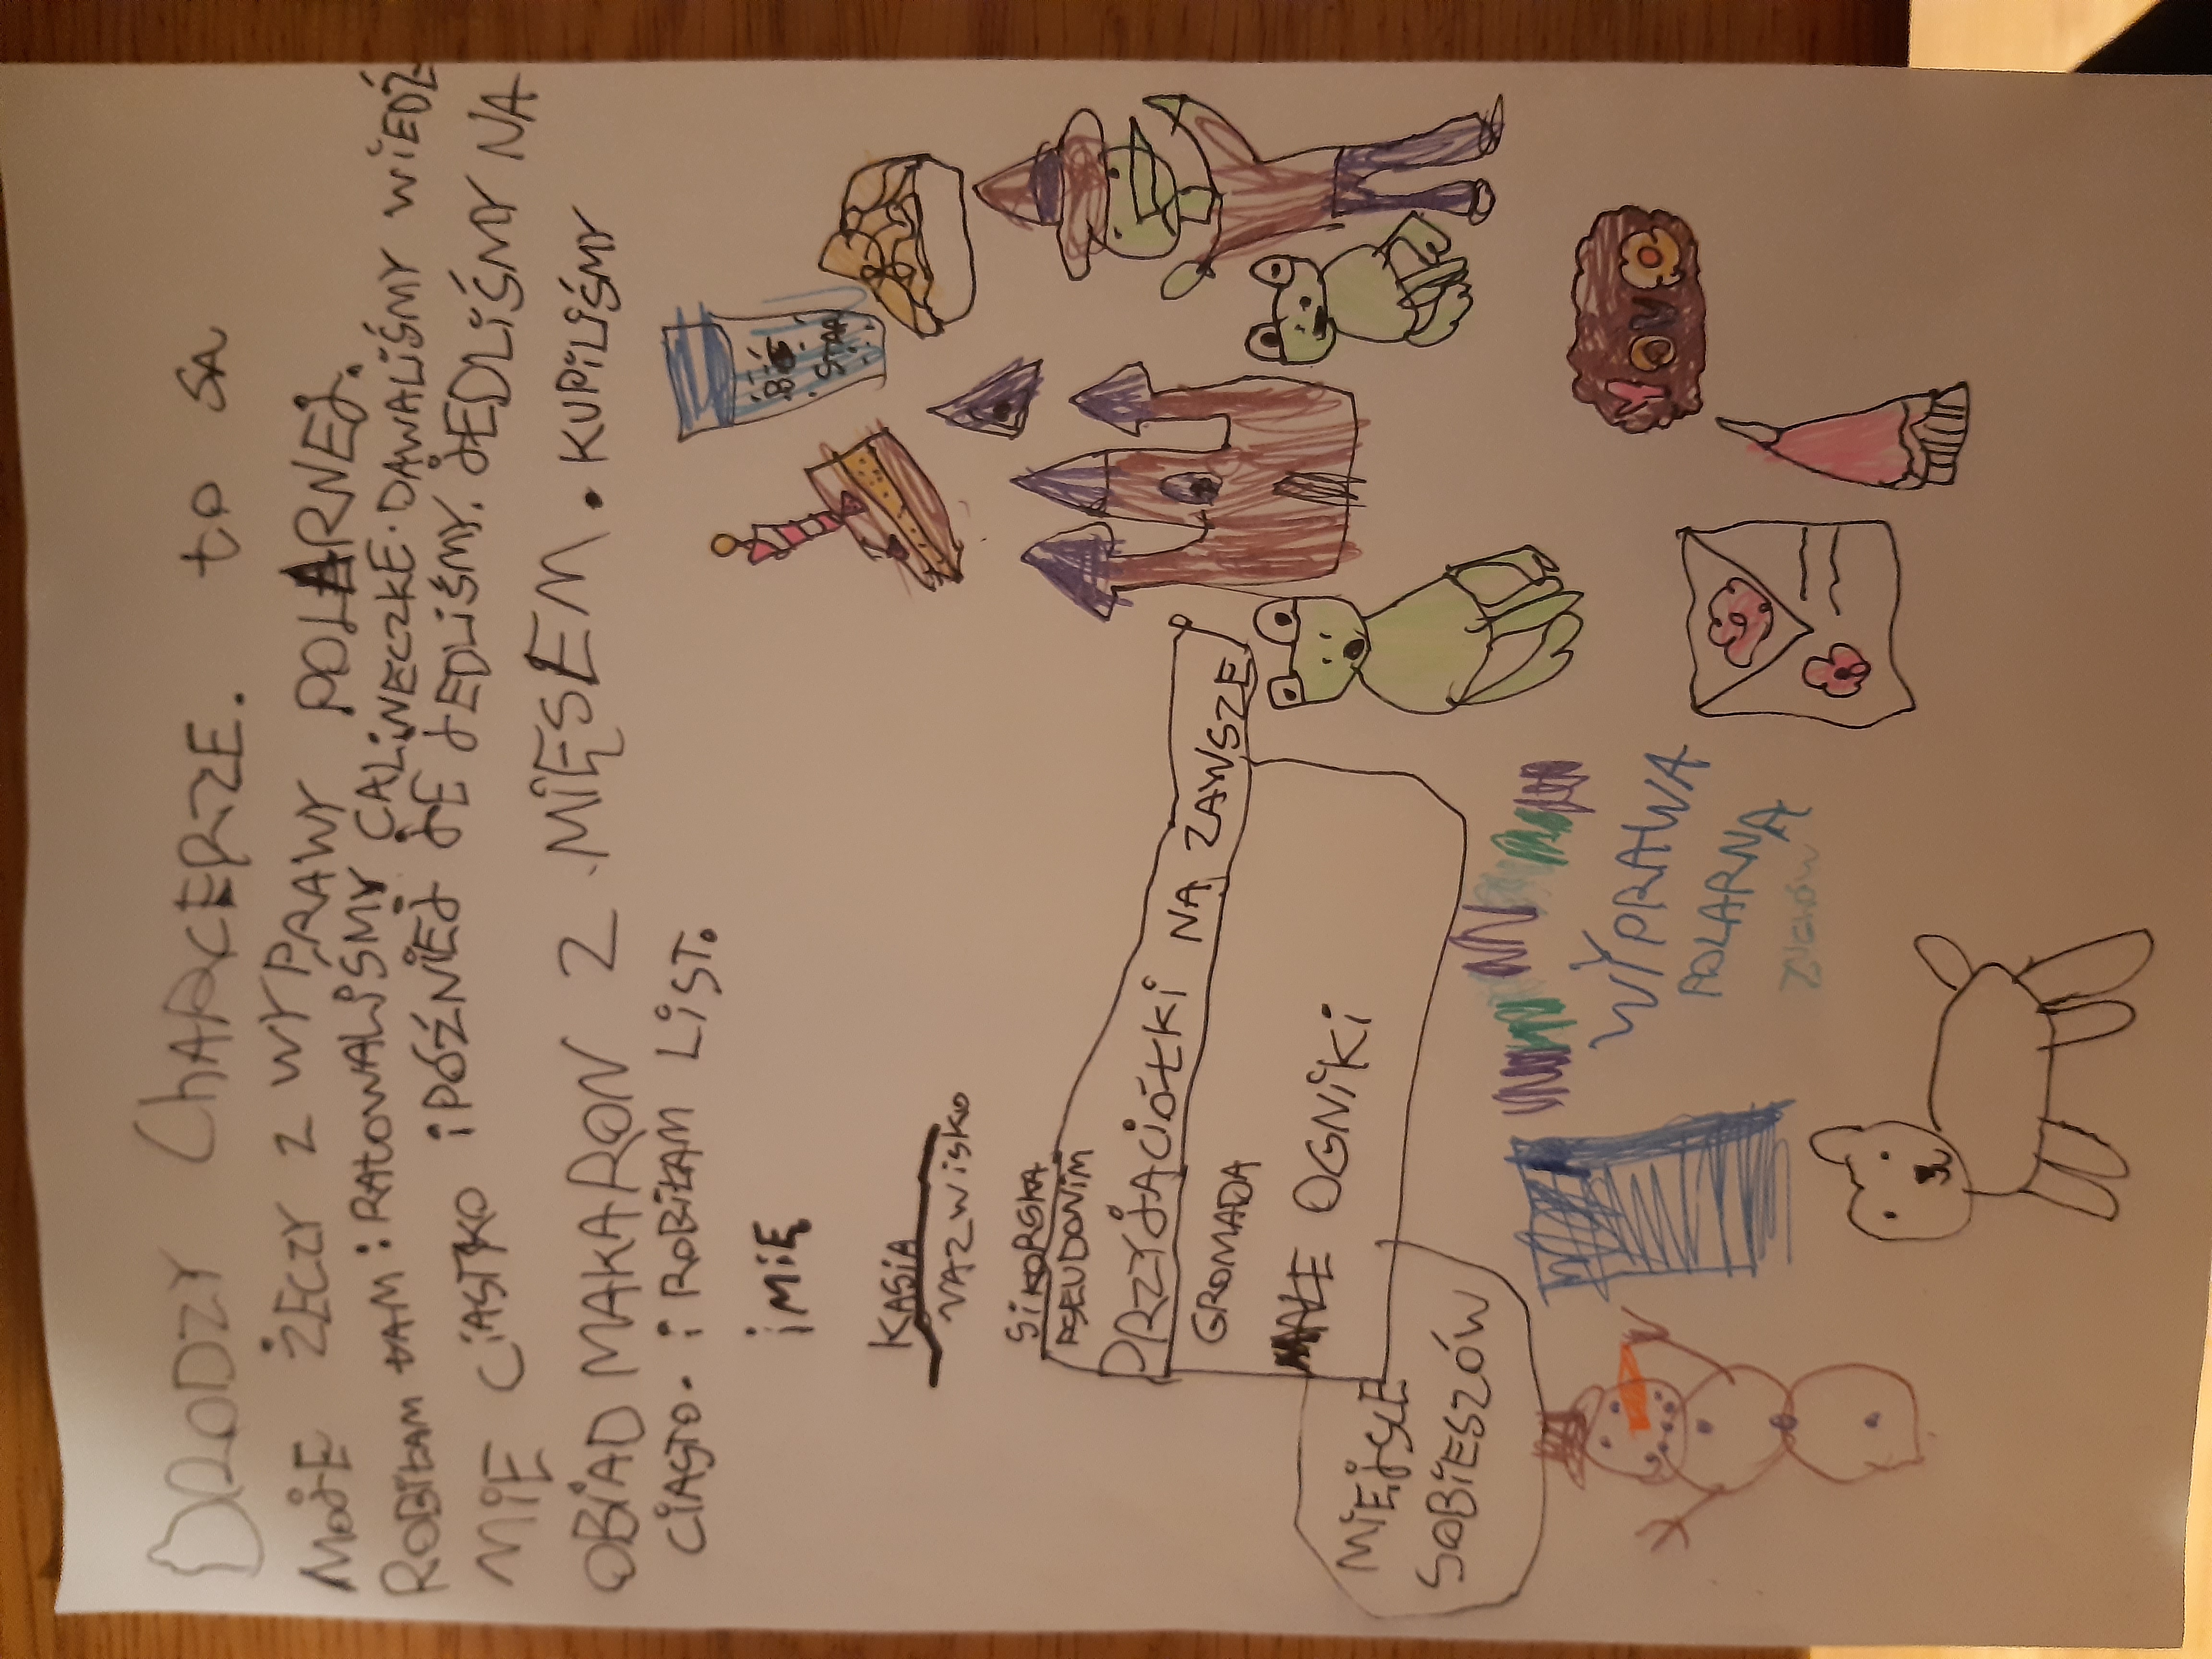 DRODZY ChARCERZE. to SA
MOJE ŻECZY Z WYPRAWY POLARNEJ.
ROBIŁAM tAM: RAtOWALIŚMY CALiNECZKE. DAWALiŚMY WiEDŹ
MiE CiASTKO i PÓŹNiEJ JE JEDLiŚMY. JEDLiŚMY NA
OBiAD MAKARON Z MiĘSEM. KUPiLiŚMY
CiASTO. i ROBiŁAM LiST.
iMiĘ
KASiA
NAZWiSKO
SiKORSKA
PSEUDONiM
PRZYJACiÓŁKi NA ZAWSZE
GROMADA
MAŁE OGNiKi
MiEJSCE
SOBiESZÓW
WYPRAWA
POLARNA
ZUCHÓW
YOMO